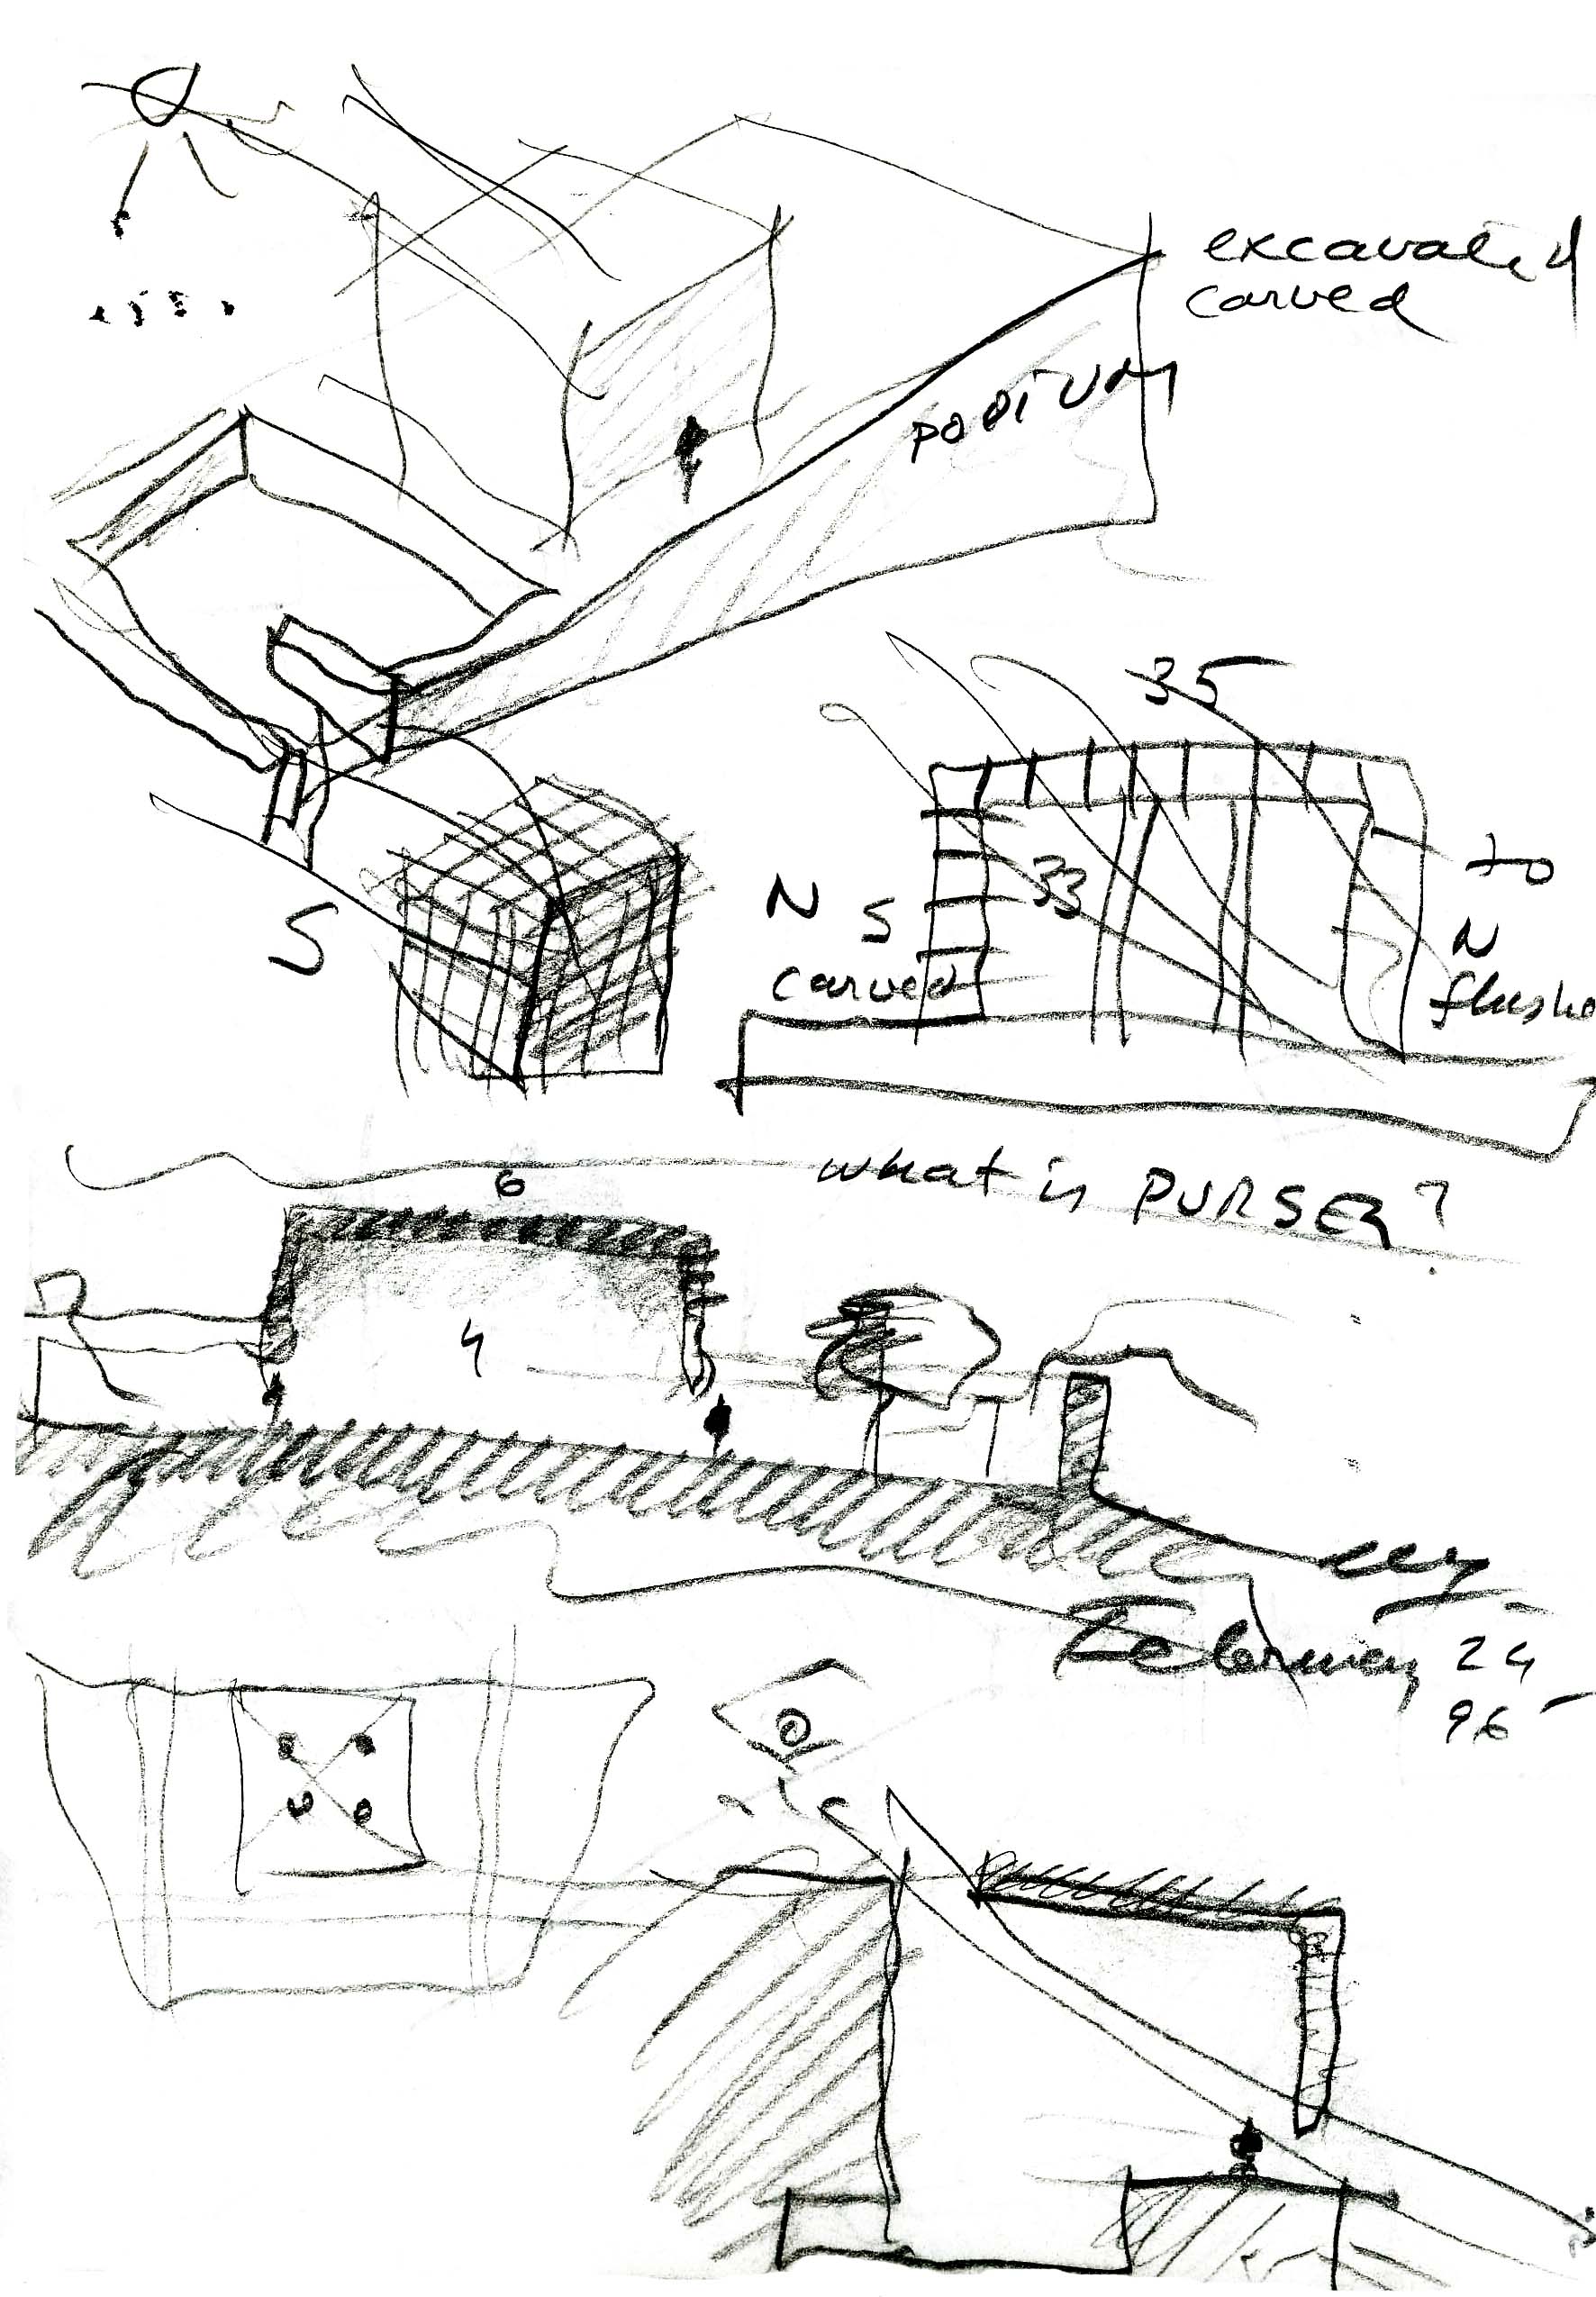 excavated
carved
PODIUM
35
33
N
S
carved
to
N
flush
S
what is PURSER?
6
4
February 24
96